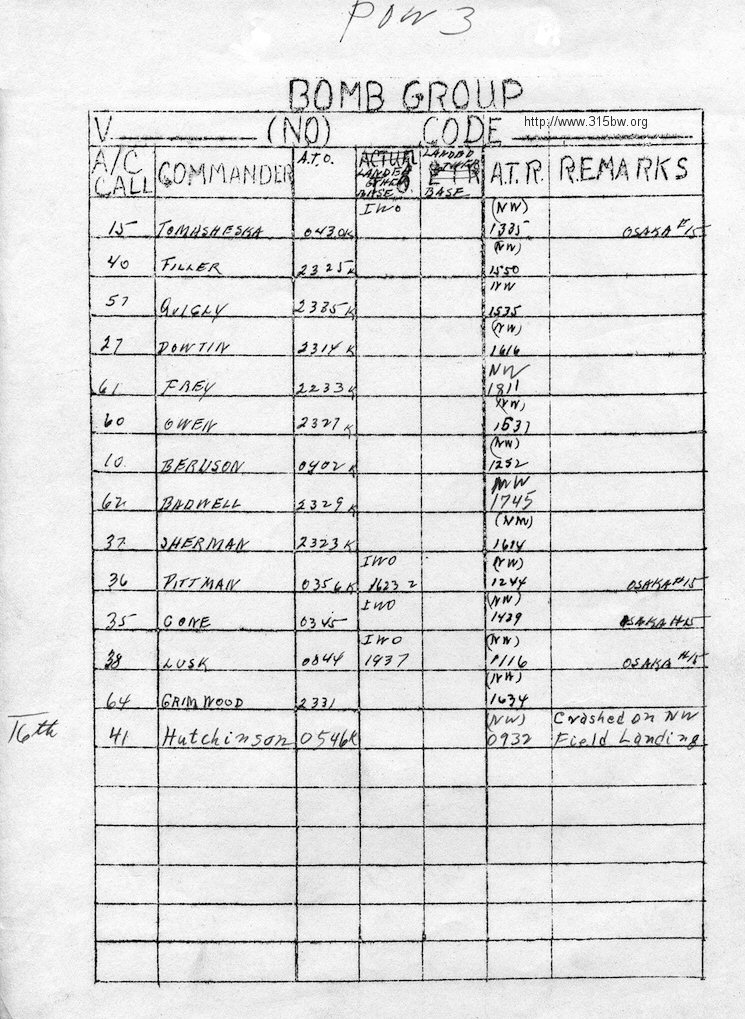 POW 3
BOMB GROUP
http://www.315bw.org
V (NO) CODE
A/C CALL COMMANDER A.T.O. ACTUAL LANDED OTHER BASE LANDED OTHER BASE A.T.R. REMARKS
IWO (NW)
15 TOMASHESKA 0430K 1335 OSAKA #15
(NW)
40 FILLER 2325K 1550
NW
57 QUIGLY 2335K 1535
(NW)
27 DOWTIN 2314K 1616
NW
61 FREY 2233K 1811
(NW)
60 OWEN 2327K
(NW)
10 BERUSON 0402K 1252
NW
62 BADWELL 2329K 1745
(NW)
37 SHERMAN 2323K 1614
IWO (NW)
36 PITTMAN 0356K 1623 1244 OSAKA #15
IWO (NW)
35 CONE 0345 1429 OSAKA #15
IWO (NW)
38 LUSK 0344 1937 1116 OSAKA #15
(NW)
64 GRIMWOOD 2331 1634
(NW) Crashed on NW
16th 41 Hutchinson 0546K 0932 Field Landing